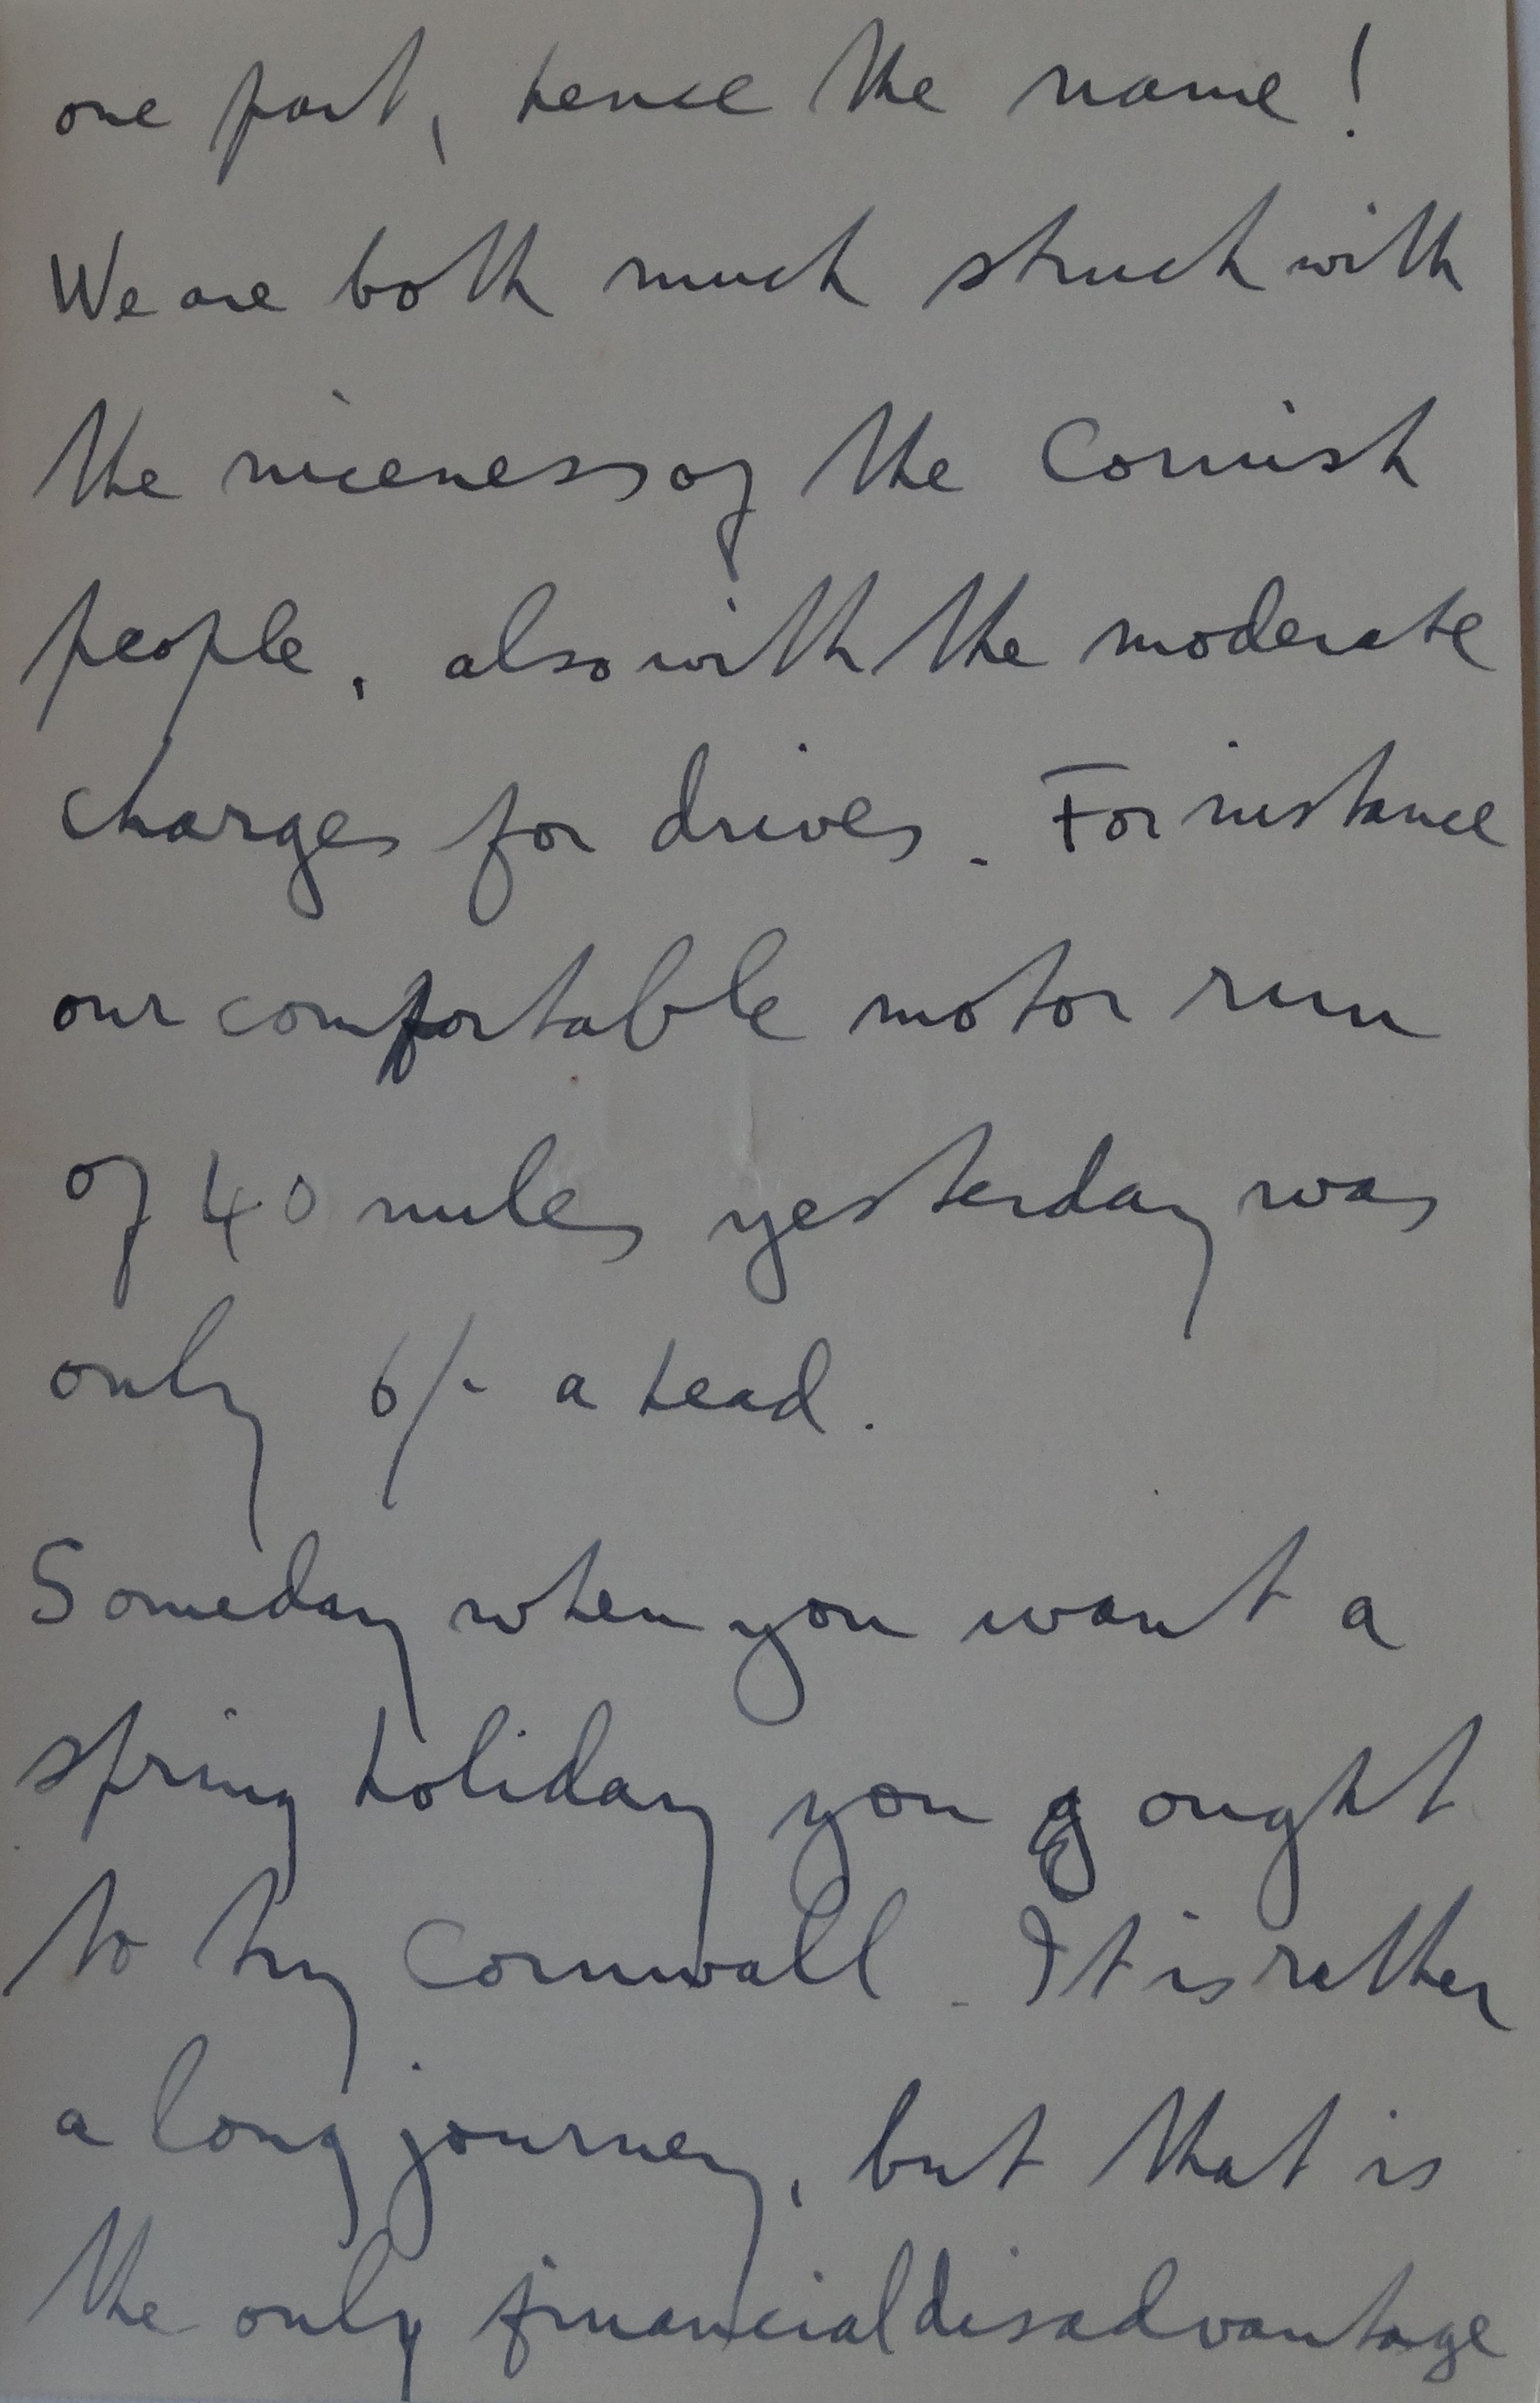 one part, hence the name!
We are both much struck with
the niceness of the Cornish
people, also with the moderate
charges for drives. For instance
our comfortable motor run
of 40 miles yesterday was
only 6/- a head.
Someday when you want a
spring holiday you ought
to try Cornwall. It is rather
a long journey, but that is
the only financial disadvantage